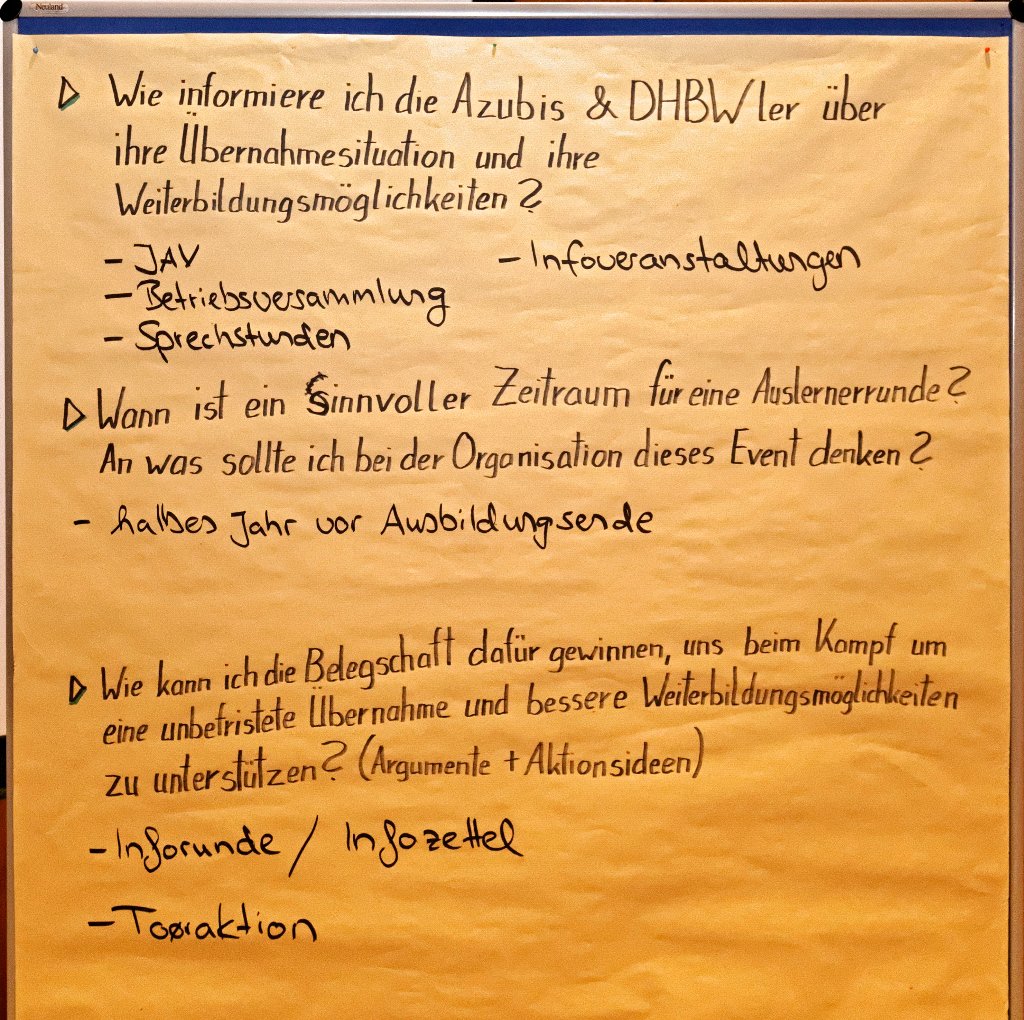 Neuland
Wie informiere ich die Azubis & DHBWler über
ihre Übernahmesituation und ihre
Weiterbildungsmöglichkeiten?
- JAV
- Infoveranstaltungen
- Betriebsversammlung
- Sprechstunden
Wann ist ein sinnvoller Zeitraum für eine Auslernerrunde?
An was sollte ich bei der Organisation dieses Event denken?
- halbes Jahr vor Ausbildungsende
Wie kann ich die Belegschaft dafür gewinnen, uns beim Kampf um
eine unbefristete Übernahme und bessere Weiterbildungsmöglichkeiten
zu unterstützen? (Argumente + Aktionsideen)
- Inforunde / Infozettel
- Toraktion